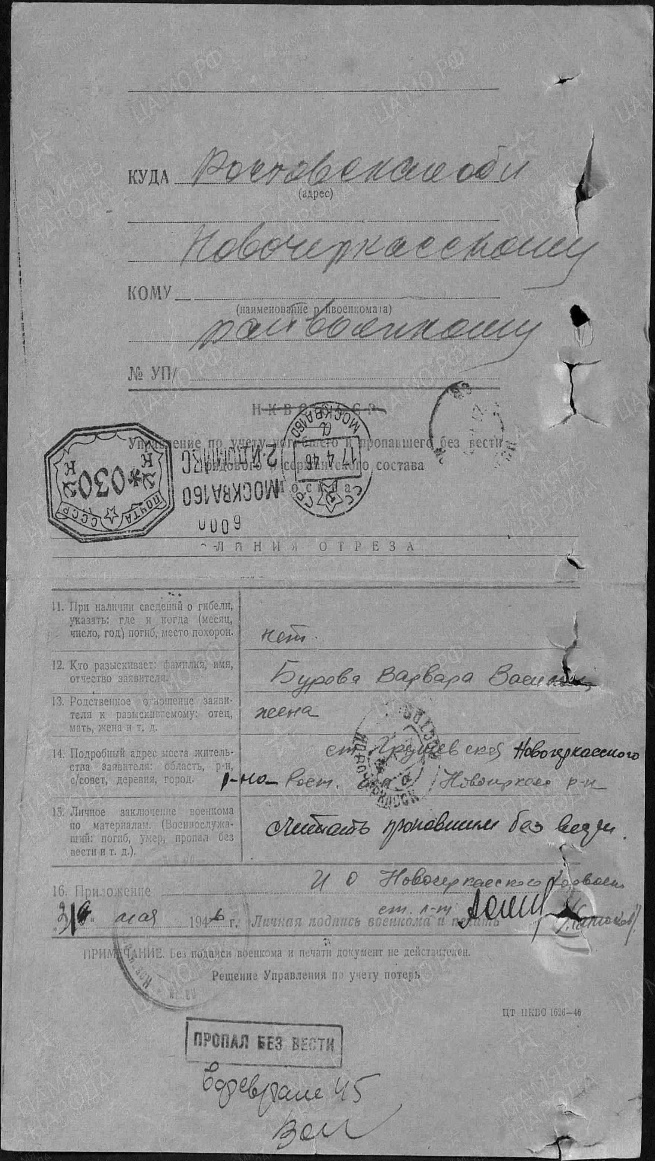 КУДА Ростовская обл
(адрес)
Новочеркасскому
КОМУ
(наименование райвоенкомата)
райвоенкому
№ УП/
НКВО СССР
Управление по учету погибшего и пропавшего без вести
рядового и сержантского состава
Москва
МОСКВА 160
17 4 46
СССР
ПОЧТА СССР
*030
МОСКВА 160
600п
ЛИНИЯ ОТРЕЗА
11. При наличии сведений о гибели,
указать: где и когда (месяц,
число, год) погиб, место похорон.
нет.
12. Кто разыскивает: фамилия, имя,
отчество заявителя.
Бурова Варвара
13. Родственное отношение заяви-
теля к разыскиваемому: отец,
мать, жена и т. д.
жена
14. Подробный адрес места житель-
ства заявителя: область, р-н,
с/совет, деревня, город.
ст. Новочеркасского
р-на Рост. р-н
15. Личное заключение военкома
по материалам. (Военнослужа-
щий: погиб, умер, пропал без
вести и т. д.).
Считать пропавшим без вести.
16. Приложение
И О Новочеркасского
мая 1946 г. Личная подпись военкома и печать
ст. л-т
ПРИМЕЧАНИЕ. Без подписи военкома и печати документ не действителен.
Решение Управления по учету потерь
ПРОПАЛ БЕЗ ВЕСТИ
в феврале 45